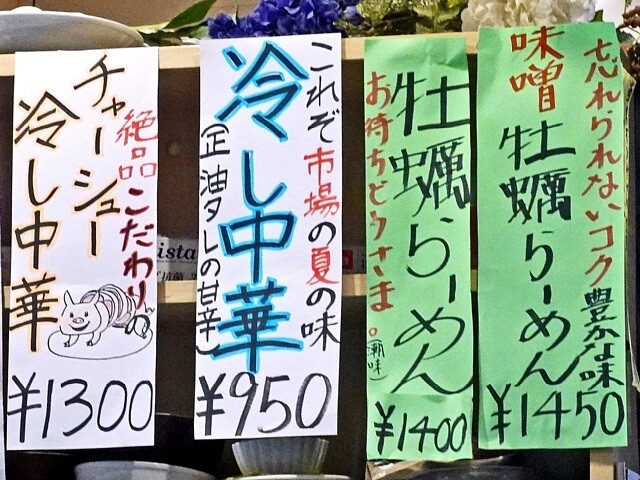 忘れられないコク
豊かな味
味噌
牡蠣らーめん
¥1450
牡蠣らーめん
(潮味)
お待ちどうさま。
¥1400
これぞ市場の夏の味
冷し中華
(正油タレの甘辛)
¥950
絶品こだわりの
チャーシュー
冷し中華
¥1300